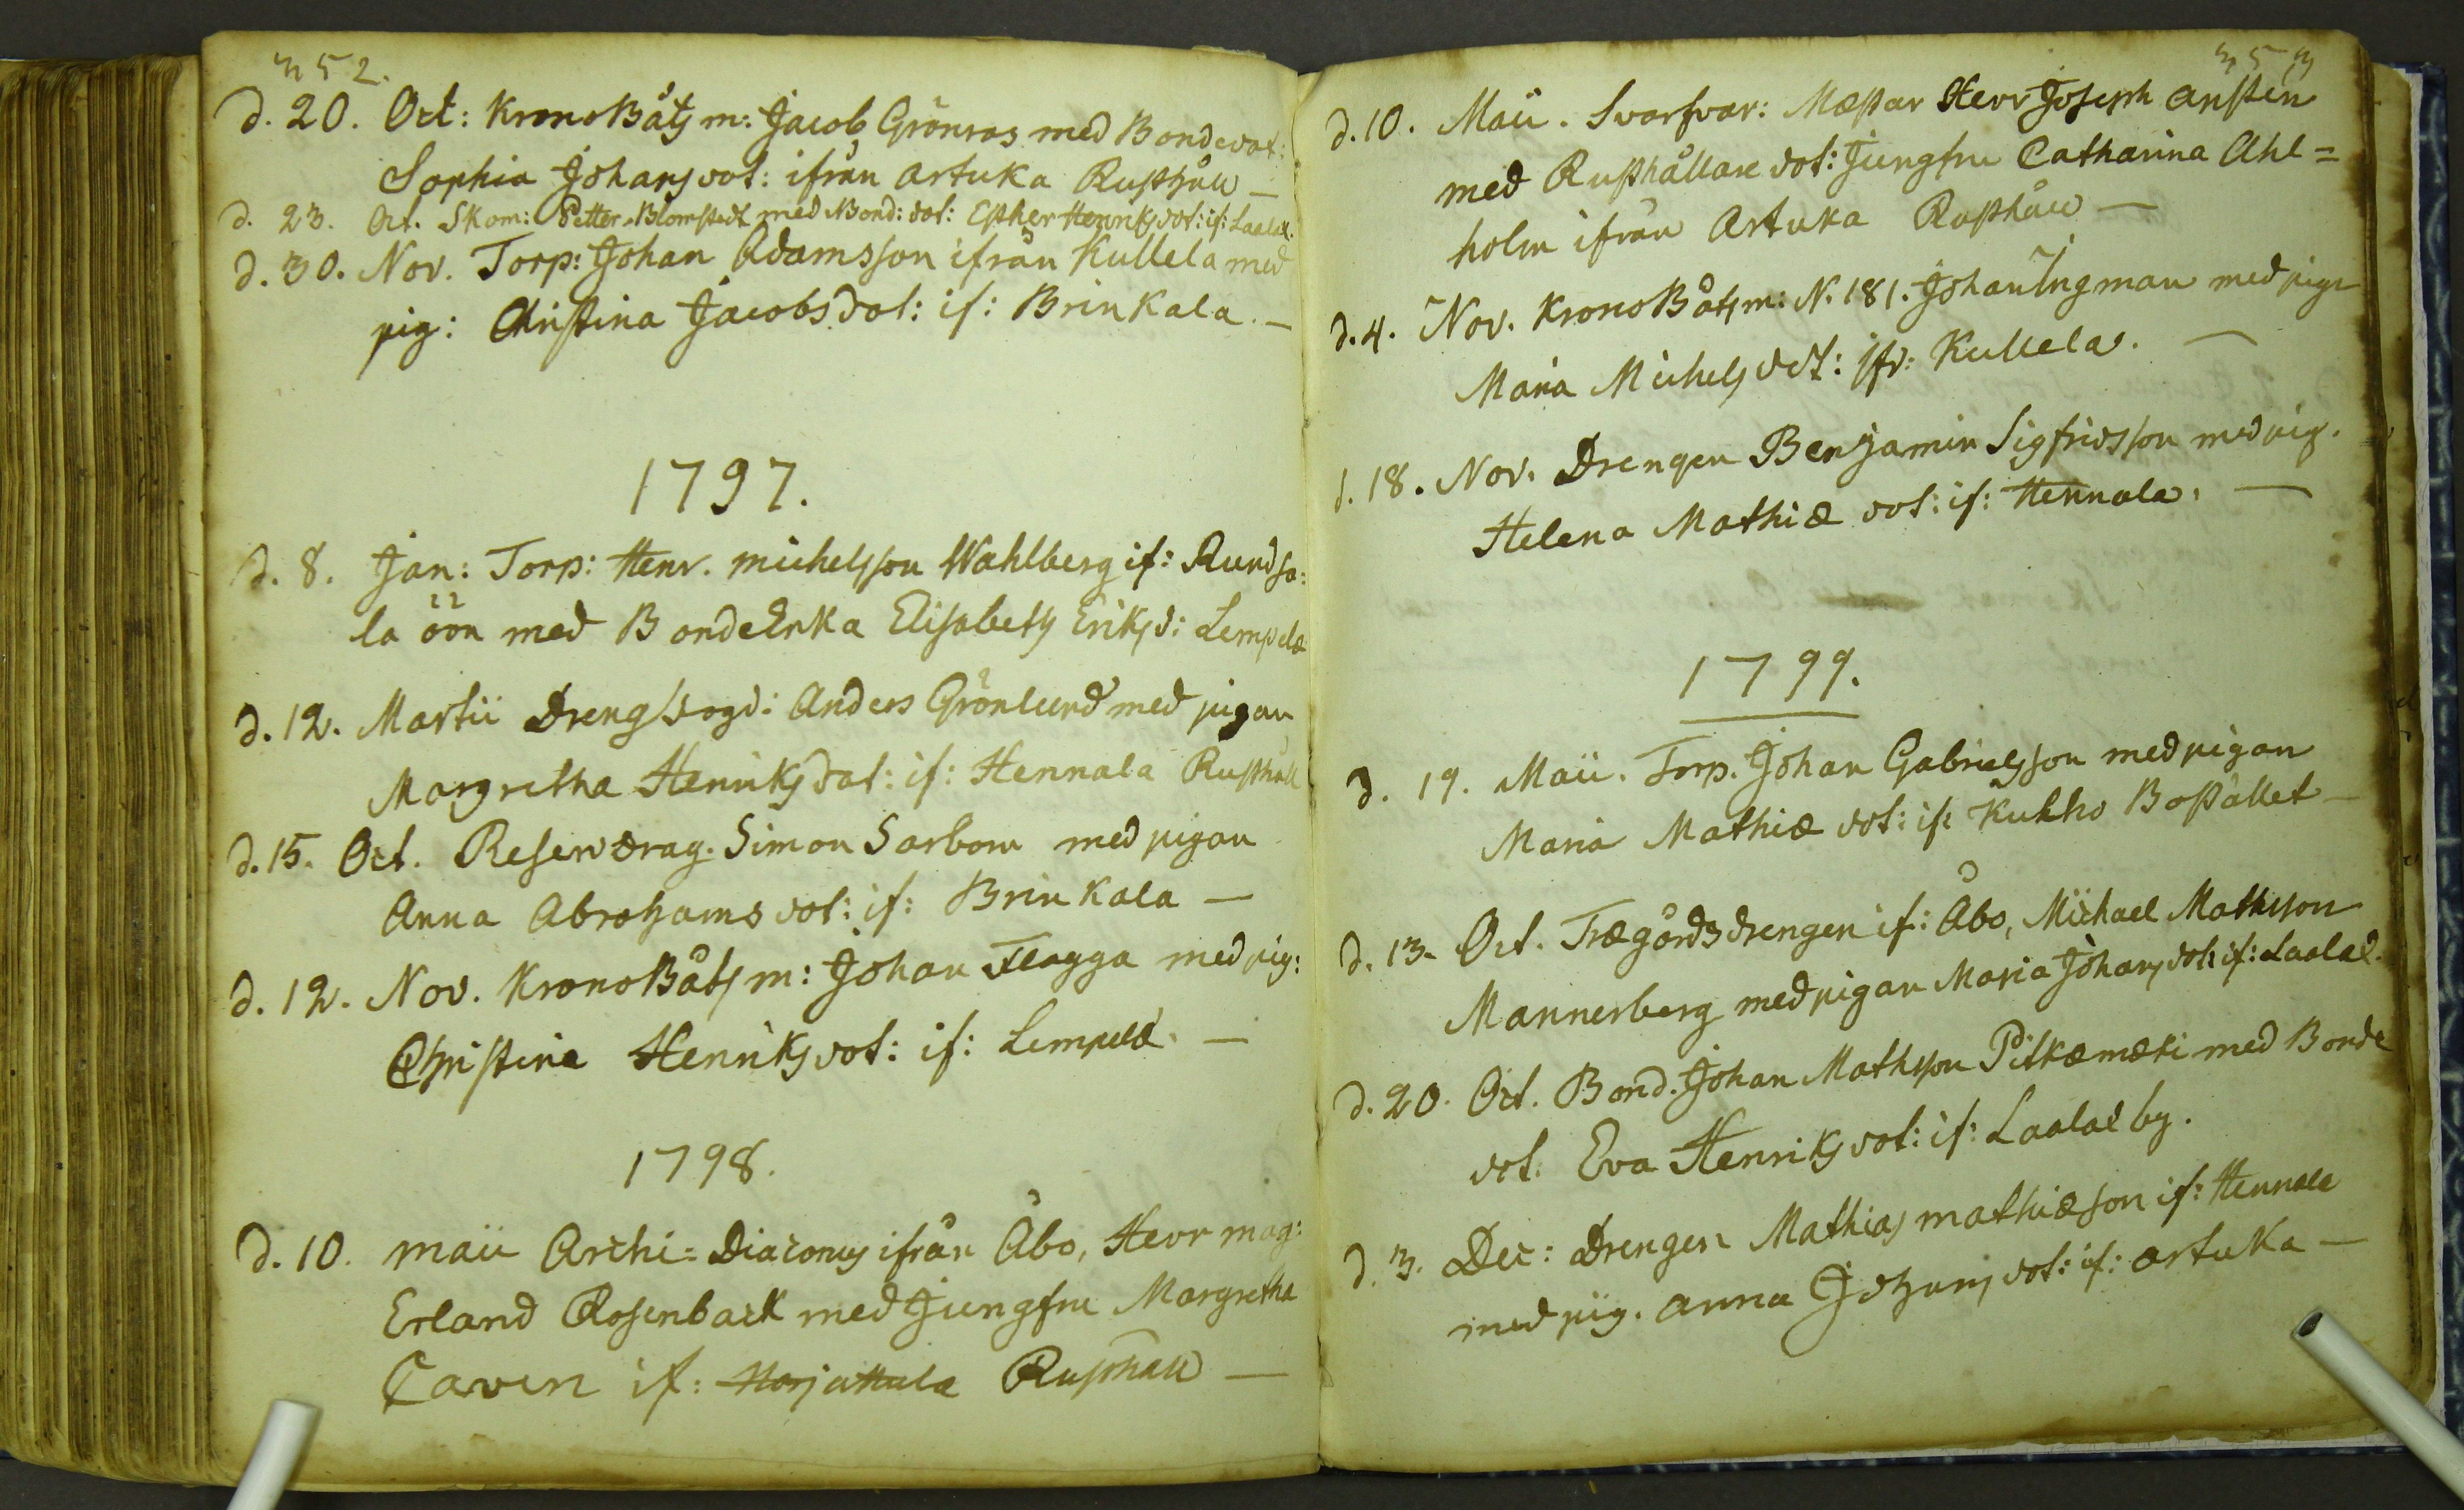 352.
d. 20. Oct: KronoBåtsm: Jacob Grönros med Bondedot:
Sophia Johansdot: ifrån Artuka Rusthåll —
d. 23. Oct. Skom: Petter Blomstedt med Bond: dot: Esther Henriksdot: if: Laalax.
d. 30. Nov. Torp: Johan Adamsson ifrån Kullela med
pig: Christina Jacobsdot: if: Brinkala. —
1797.
d. 8. Jan: Torp: Henr. Michelsson Wahlberg if: Rundsa=
la öön med BondeEnka Elisabeth Eriksd: Lempelæ
d. 12. Martii Drengfogd: Anders Grönlund med pigan
Margretha Henriksdot: if: Hennala Rusthåll
d. 15. Oct. Reserv Drag. Simon Sarbom med pigan
Anna Abrahams dot: if: Brinkala —
d. 12. Nov. KronoBåtsm: Johan Flagga med pig:
Christina Henriksdot: if: Lempelæ. —
1798.
d. 10. Maii Archi=Diaconus ifrån Åbo, Herr Mag:
Erland Rosenback med Jungfru Margretha
Caven if: Harjattula Rusthåll —
353
d. 10. Maii. Svarfvar: Mæstar Herr Joseph Arsten
med Rusthållare dot: Jungfru Catharina Ahl=
holm ifrån Artuka Rusthåll —
d. 4. Nov. KronoBåtsm: N. 181. Johan Ingman med pign
Maria Michelsdot: ifr: Kullela. —
d. 18. Nov. Drengen Benjamin Sigfridsson med pig.
Helena Mathiæ dot: if: Hennala. —
1799.
d. 19. Maii. Torp. Johan Gabrielsson med pigan
Maria Mathiæ dot: if: Kukko Bostället —
d. 13. Oct. Trægårdsdrengen if: Åbo, Michael Mathsson
Mannerberg med pigan Maria Johansdot: if: Laalax.
d. 20. Oct. Bond. Johan Mathsson Pitkæmæki med Bonde
dot: Eva Henriksdot: if: Laalax by.
d. 3. Dec: Drengen Mathias Mathiæson if: Hennala
med pig. Anna Johansdot: if: Artuka —